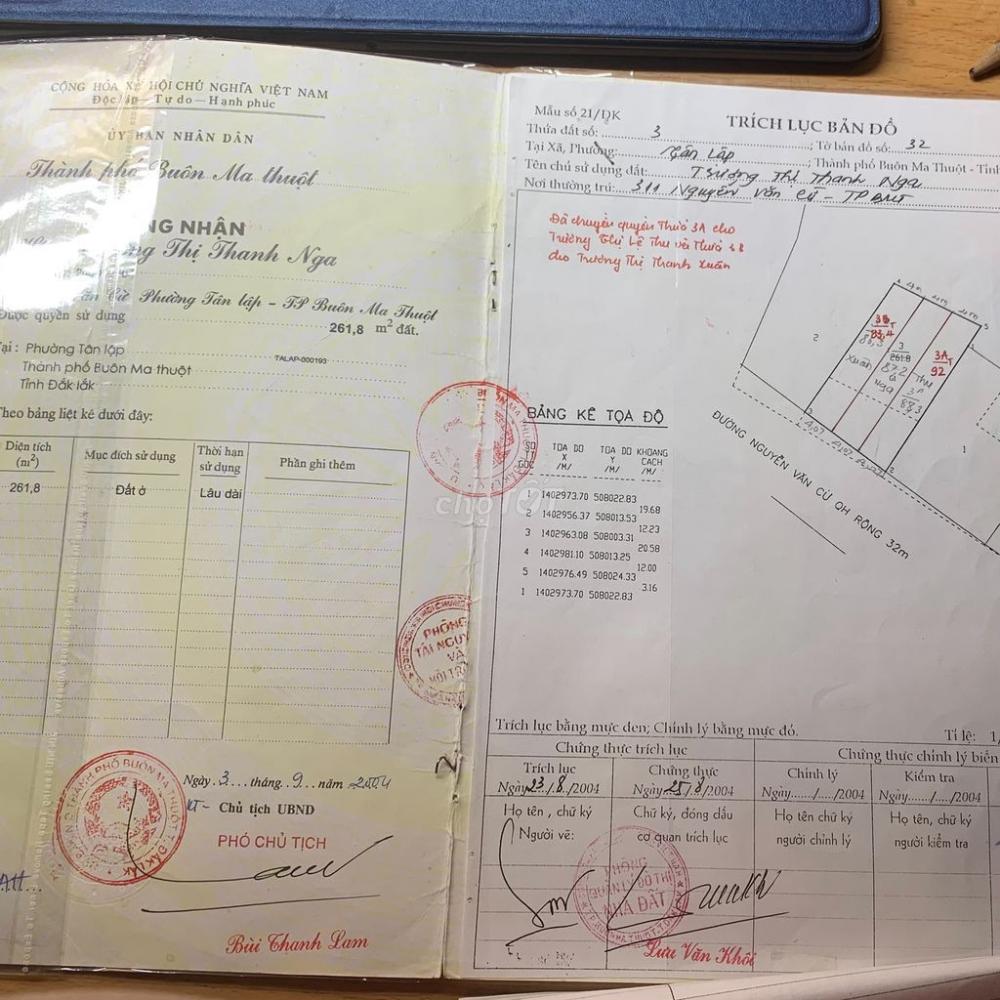 CỘNG HÒA XÃ HỘI CHỦ NGHĨA VIỆT NAM
Độc lập — Tự do — Hạnh phúc
ỦY BAN NHÂN DÂN
Thành phố Buôn Ma thuột
NG NHẬN
Thị Thanh Nga
Cừ Phường Tân lập - TP Buôn Ma Thuột
Được quyền sử dụng 261,8 m² đất.
Tại : Phường Tân lập
TALAP-000193
Thành phố Buôn Ma thuột
Tỉnh Đắk lắk
Theo bảng liệt kê dưới đây:
Diện tích (m²) Mục đích sử dụng Thời hạn sử dụng Phần ghi thêm
261,8 Đất ở Lâu dài
PHÒNG
TÀI NGUY
VÀ
MÔI TR
Ngày 3 tháng 9 năm 2004
KT- Chủ tịch UBND
PHÓ CHỦ TỊCH
Bùi Thanh Lam
Mẫu số 21/ĐK
TRÍCH LỤC BẢN ĐỒ
Thửa đất số: 3 ; Tờ bản đồ số: 32
Tại Xã, Phường: Tân Lập ; Thành phố Buôn Ma Thuột - Tỉnh
Tên chủ sử dụng đất: Trương Thị Thanh Nga
Nơi thường trú: 311 Nguyễn Văn Cừ - TP BMT
Đã chuyển quyền Thửa 3A cho
Trương Thị Lệ Thu và Thửa 3B
cho Trương Thị Thanh Xuân
2
3B
83,4
Xuân
3
261.8
87,2
Nga
3A
92
Thu
5
1
ĐƯỜNG NGUYỄN VĂN CỪ QH RỘNG 32m
BẢNG KÊ TỌA ĐỘ
SỐ TT GÓC TỌA ĐỘ X /M/ TỌA ĐỘ Y /M/ KHOANG CÁCH /M/
1 1402973.70 508022.83
19.68
2 1402956.37 508013.53
12.23
3 1402963.08 508003.31
20.58
4 1402981.10 508013.25
12.00
5 1402976.49 508024.33
3.16
1 1402973.70 508022.83
chợ TỐT
Trích lục bằng mực đen; Chỉnh lý bằng mực đỏ.
Tỉ lệ: 1
Chứng thực trích lục Chứng thực chỉnh lý biến
Trích lục Chứng thực Chỉnh lý Kiểm tra
Ngày 23/8/2004 Ngày 25/8/2004 Ngày..../..../2004 Ngày..../..../2004
Họ tên , chữ ký Chữ ký, đóng dấu Họ tên, chữ ký Họ tên, chữ ký
Người vẽ: cơ quan trích lục người chỉnh lý người kiểm tra
PHÒNG
QUẢN LÝ ĐÔ THỊ
NHÀ ĐẤT
Lưu Văn Khôi